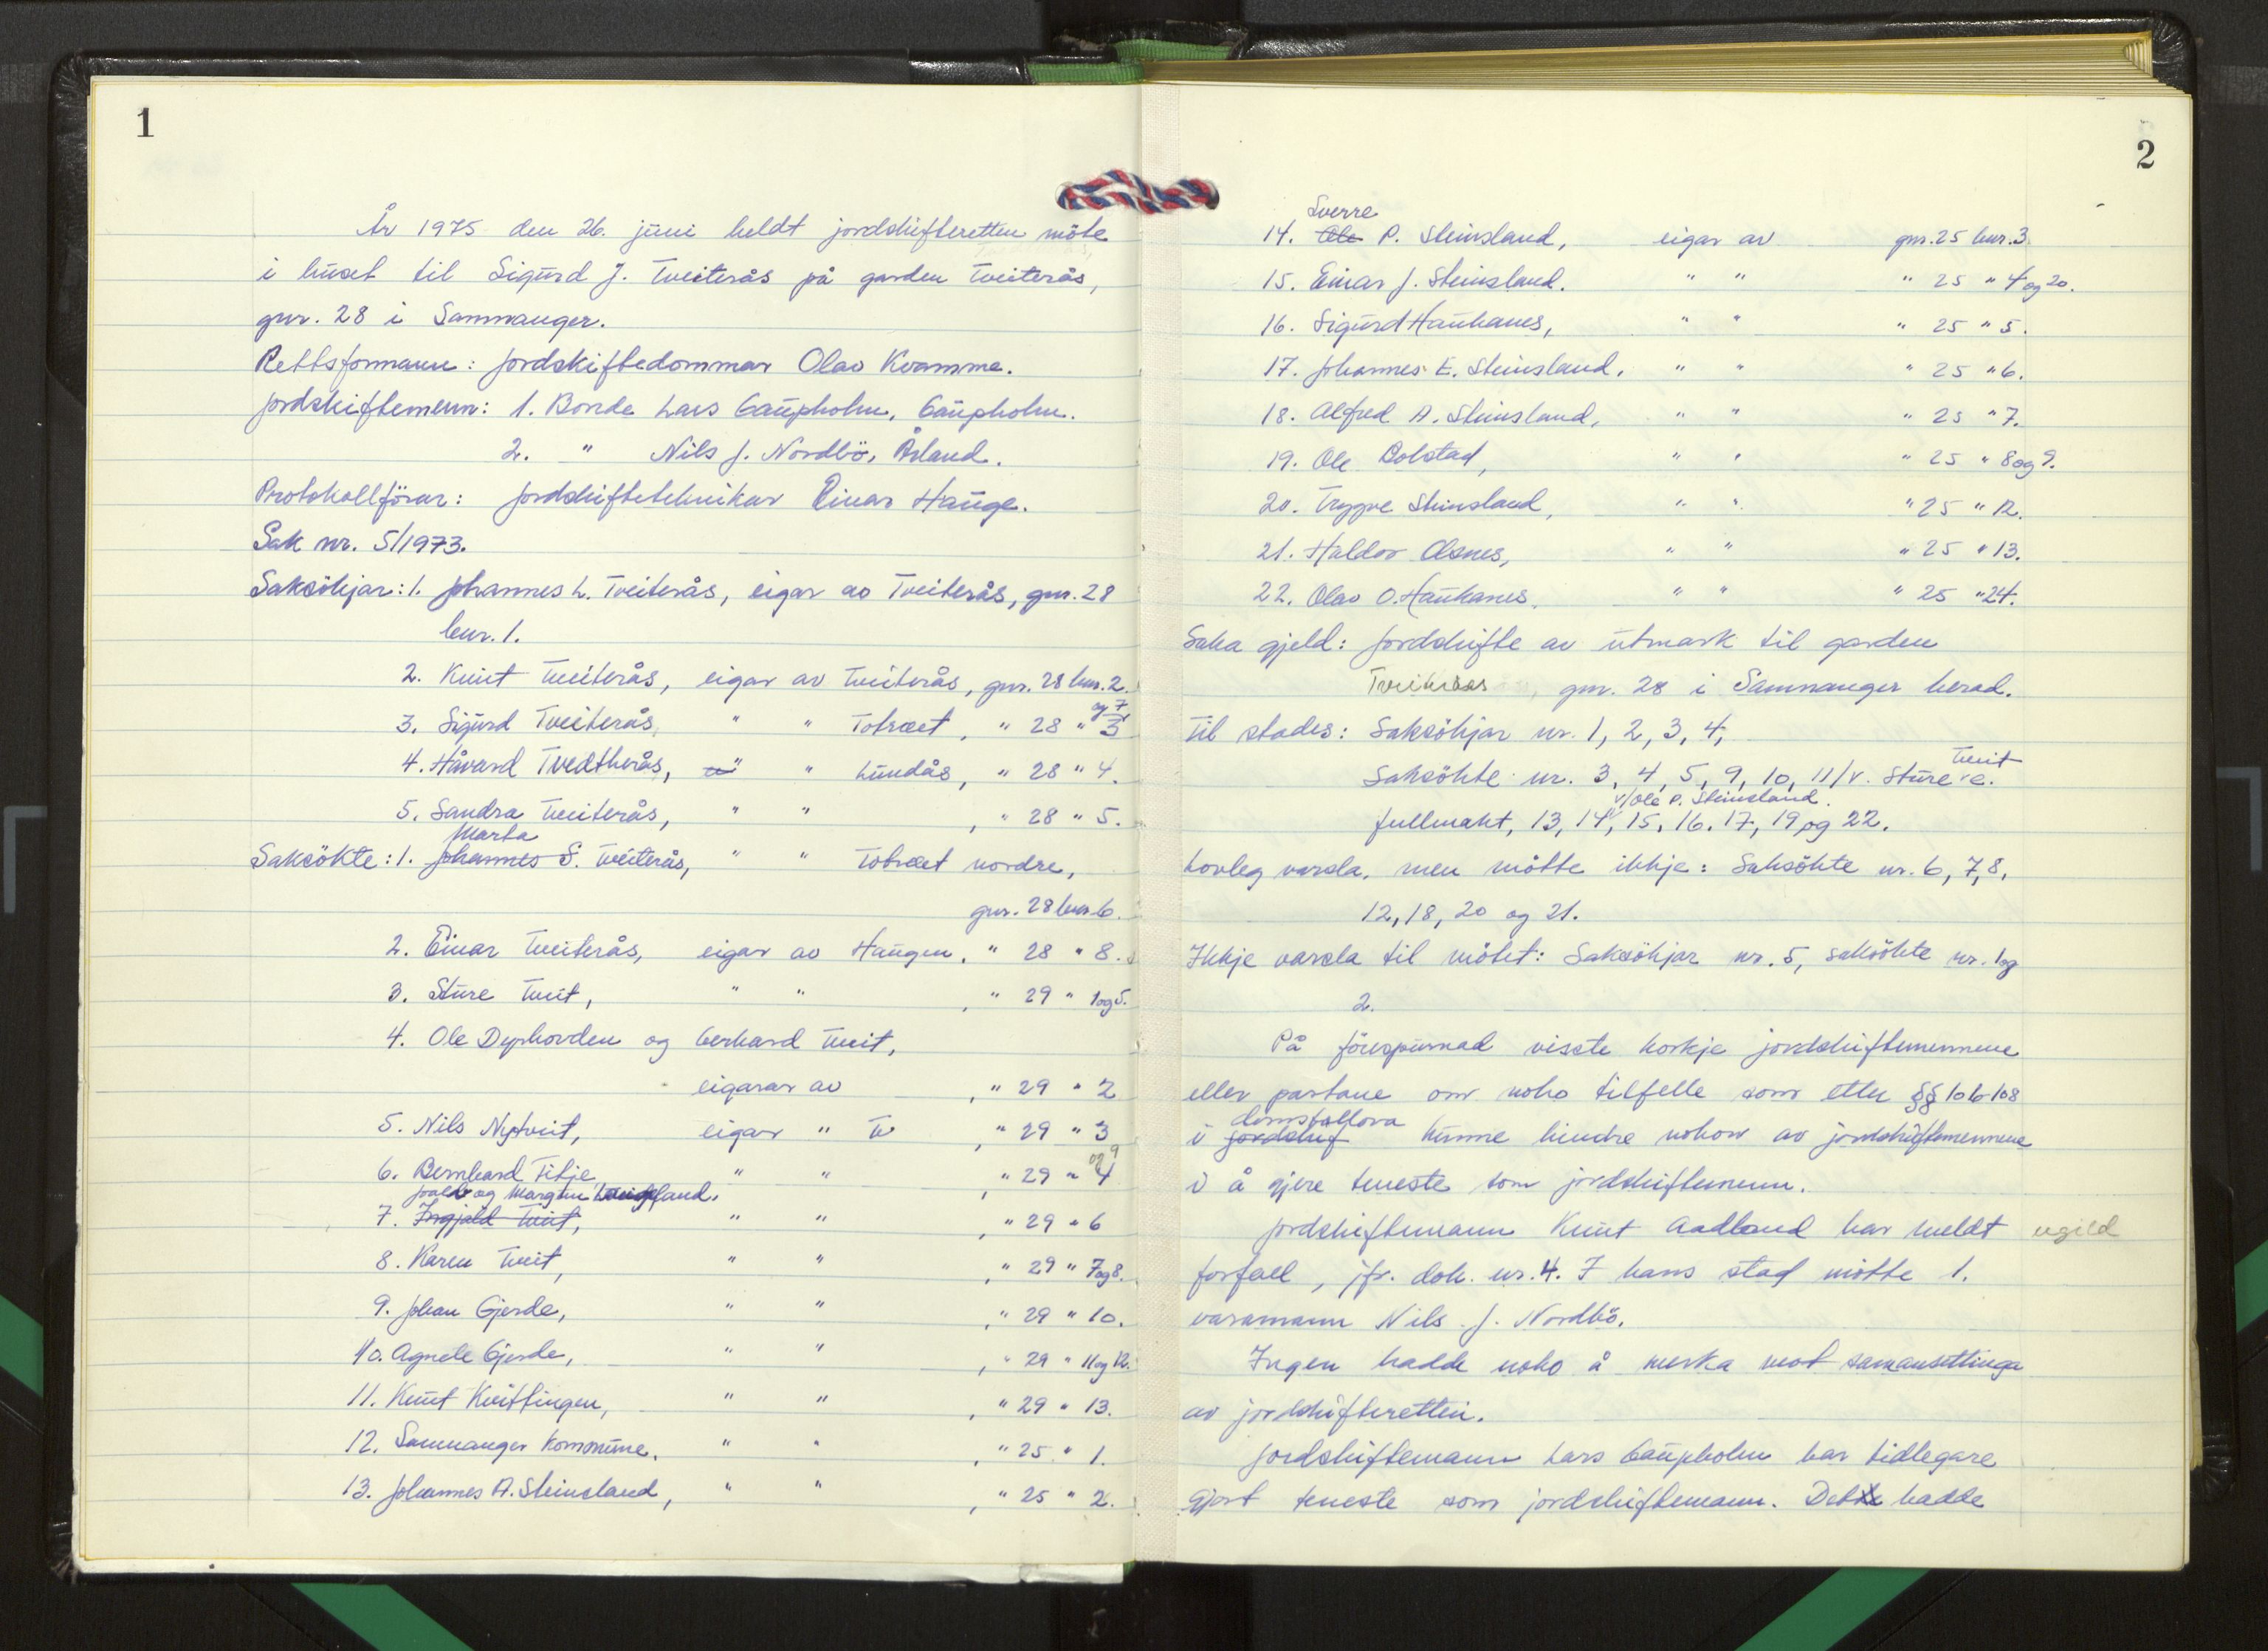 1
År 1975 den 26. juni heldt jordskifteretten möte
i huset til Sigurd J. Tveiterås på garden Tveiterås,
gnr. 28 i Samnanger.
Rettsformann: Jordskiftedommar Olav Kvamme.
Jordskiftemenn: 1. Bonde Lars Gaupholm, Gaupholm.
2. " Nils J. Nordbö, Årland.
Protokollförar: Jordskifteteknikar Einar Hauge.
Sak nr. 5/1973.
Saksökjar: 1. Johannes L. Tveiterås, eigar av Tveiterås, gnr. 28
bnr. 1.
2. Knut Tveiterås, eigar av Tveiterås, gnr. 28 bnr. 2.
og 7
3. Sigurd Tveiterås, " " Totræet, " 28 " 3
4. Håvard Tvedtherås, " " Lundås, " 28 " 4.
5. Sandra Tveiterås, " " , " 28 " 5.
Marta
Saksökte: 1. Johannes S. Tveiterås, " " Totræet nordre,
gnr. 28 bnr 6.
2. Einar Tveiterås, eigar av Haugen, " 28 " 8.
3. Sture Tveit, " " , " 29 " 1 og 5.
4. Ole Dyrhovden og Gerhard Tveit,
eigarar av , " 29 " 2
5. Nils Nytveit, eigar " , " 29 " 3
og 9
6. Bernhard Titje " " , " 29 " 4
og Margun
7. Ingjald Tveit, " " , " 29 " 6
8. Karen Tveit, " " , " 29 " 7 og 8.
9. Johan Gjerde, " " , " 29 " 10.
10. Agnete Gjerde, " " , " 29 " 11 og 12.
11. Knut Kvittingen, " " , " 29 " 13.
12. Samnanger kommune. " " , " 25 " 1.
13. Johannes A. Steinsland, " " , " 25 " 2.
2
Sverre
14. Ole P. Steinsland, eigar av gnr. 25 bnr. 3.
15. Einar J. Steinsland. " " " 25 " 4 og 20.
16. Sigurd Haukanes, " " " 25 " 5.
17. Johannes E. Steinsland, " " " 25 " 6.
18. Alfred A. Steinsland, " " " 25 " 7.
19. Ole Bolstad, " " " 25 " 8 og 9.
20. Trygve Steinsland, " " " 25 " 12.
21. Haldor Aksnes, " " " 25 " 13.
22. Olav O. Haukanes. " " " 25 " 24.
Saka gjeld: Jordskifte av utmark til garden
Tveiterås, gnr. 28 i Samnanger herad.
Til stades: Saksökjar nr. 1, 2, 3, 4,
Tveit
Saksökte nr. 3, 4, 5, 9, 10, 11/v. Sture e.
v/Ole P. Steinsland.
fullmakt, 13, 14, 15, 16, 17, 19 og 22.
Lovleg varsla, men mötte ikkje: Saksökte nr. 6, 7, 8,
12, 18, 20 og 21.
Ikkje varsla til mötet: Saksökjar nr. 5, saksökte nr. 1 og
2.
På förespurnad visste korkje jordskiftemennene
eller partane om noko tilfelle som etter §§ 106-108
domstollova
i jordskif kunne hindre nokon av jordskiftemennene
i å gjere teneste som jordskiftemenn.
Jordskiftemann Knut Aadland har meldt ugild
forfall, jfr. dok. nr. 4. I hans stad mötte 1.
varamann Nils J. Nordbö.
Ingen hadde noko å merka mot samansettinga
av jordskifteretten.
Jordskiftemann Lars Gaupholm har tidlegare
gjort teneste som jordskiftemann. Dette hadde